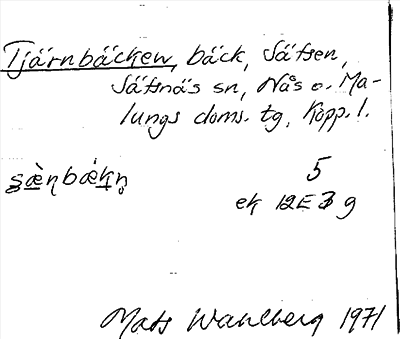 Tjärnbäcken, bäck, Säfsen,
Säfsnäs sn, Nås o. Ma-
lungs doms. tg, Kopp. l.
5
ek 12E3g
Mats Wahlberg 1971